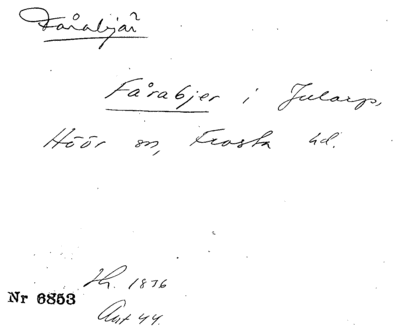 Fårabjär
Fårabjer i Jularp,
Höör sn, Frosta hd.
Hr. 1876
Nr 6853
Ant 44.